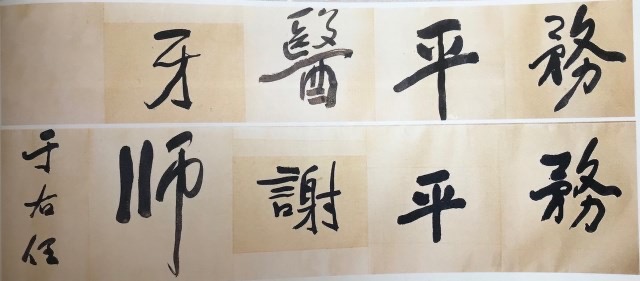 務平醫牙
務平謝師
于右任